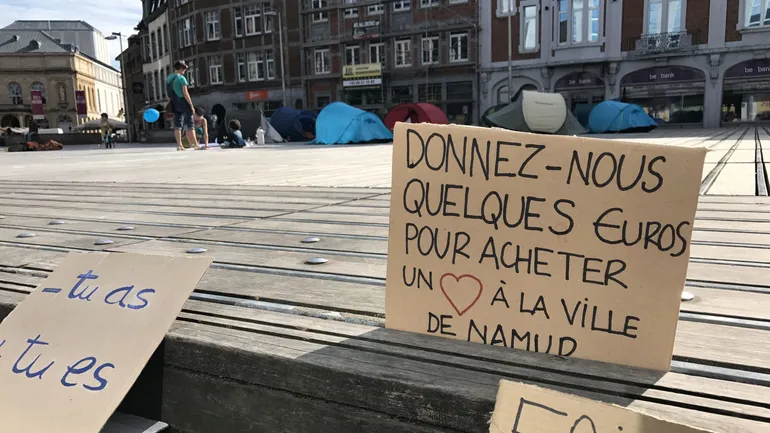 DONNEZ-NOUS
QUELQUES EUROS
POUR ACHETER
UN ♡ À LA VILLE
DE NAMUR
= tu as
tu es
be bank
be bank